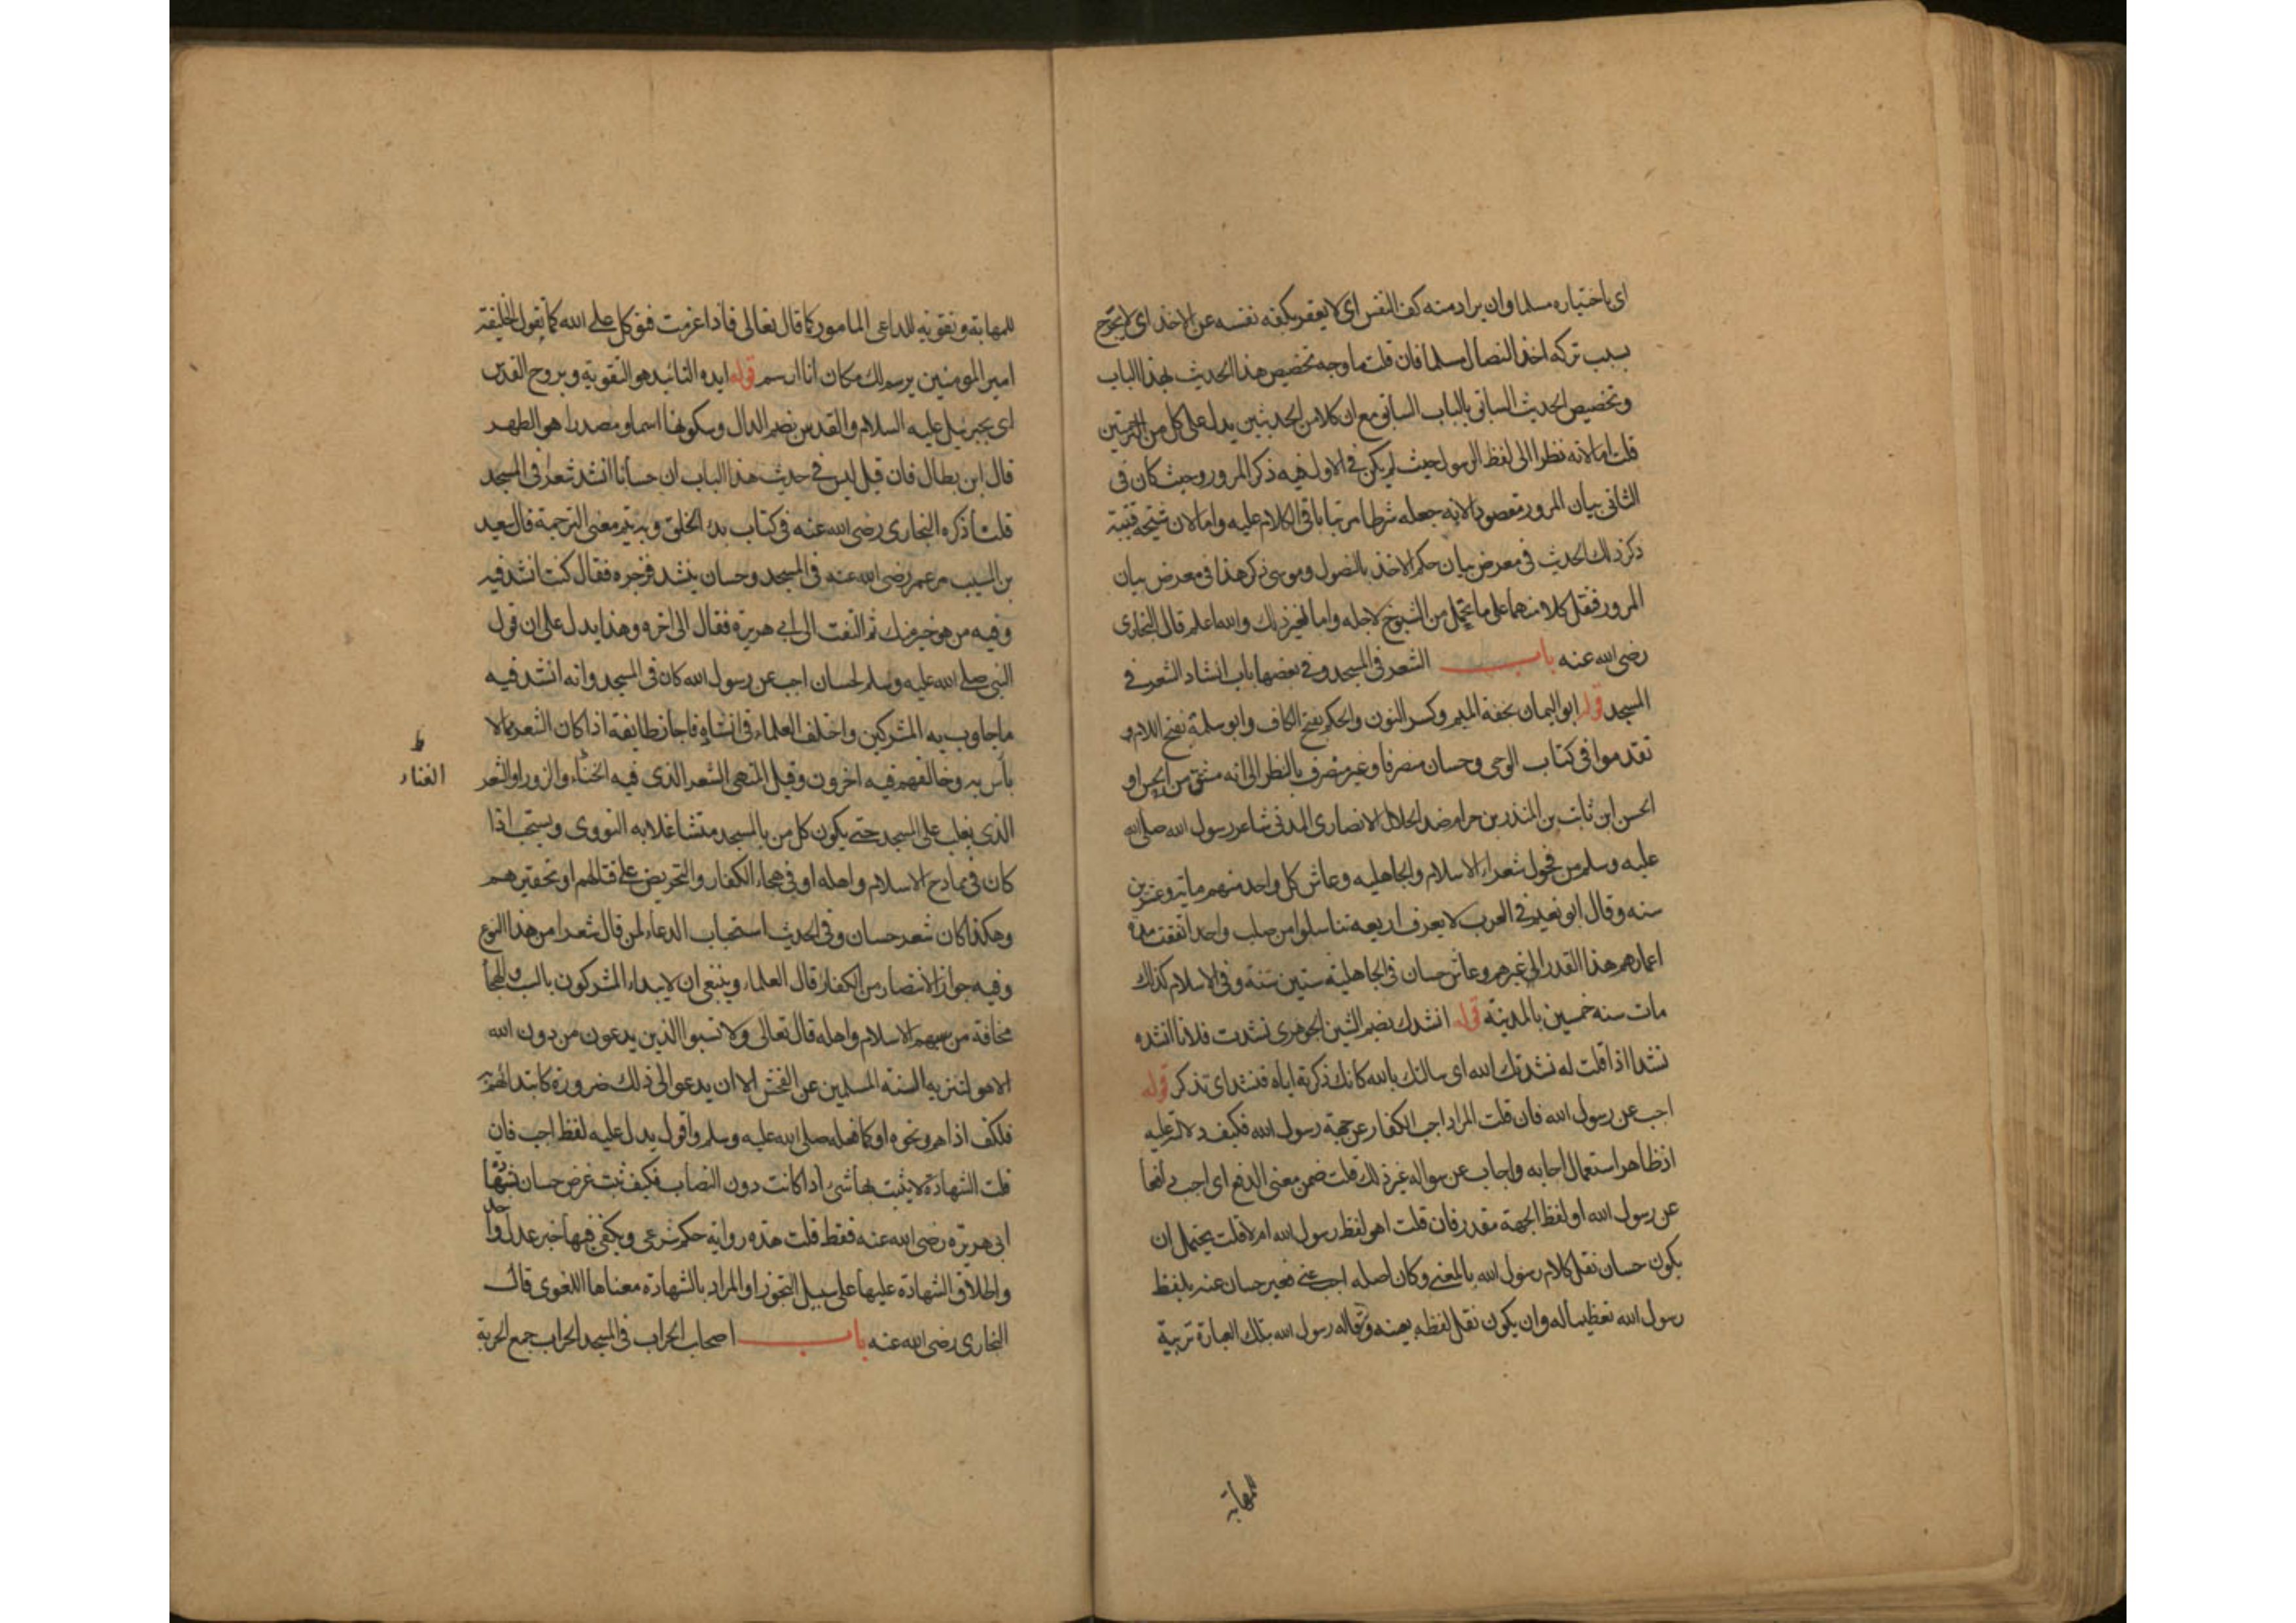 اى باختياره مسلما وان يراد منه كف النفس اى لا يعقر بكفه نفسه عن الاخذ اى لا يجرح
بسبب تركه اخذ النصال مسلما فان قلت ما وجه تخصيص هذا الحديث بهذا الباب
وتخصيص الحديث السابق بالباب السابق مع ان كلا من الحديثين يدل على كل من الترجمتين
قلت اما لانه نظرا الى لفظ الرسول حيث لم يكن فى الاول فيه ذكر المرور وحيث كان فى
الثانى بيان المرور مقصودا لانه جعله شرطا مرتبا باقى الكلام عليه واما لان شيخه قتيبة
ذكر ذلك الحديث فى معرض بيان حكم الاخذ بالنصول وموسى ذكر هذا فى معرض بيان
المرور فنقل كلا منهما على ما تحمل من الشيوخ لاجله واما لغير ذلك والله اعلم قال البخارى
رضى الله عنه باب الشعر فى المسجد وفى بعضها باب انشاد الشعر فى
المسجد قوله ابو اليمان بخفة الميم وكسر النون والحكم بفتح الكاف وابو سلمة بفتح اللام و
تقدموا فى كتاب الوحى وحسان منصرفا وغير منصرف بالنظر الى انه مشتق من الحس او
الحسن ابن ثابت بن المنذر بن حرام ضد الحلال الانصارى المدنى شاعر رسول الله صلى الله
عليه وسلم من فحول شعراء الاسلام والجاهليه وعاش كل واحد منهم مايه وعشرين
سنه وقال ابو نعيم فى العرب لا يعرف اربعه تناسلوا من صلب واحد اتفقت مدة
اعمارهم هذا القدر الى غيرهم وعاش حسان فى الجاهلية ستين سنة وفى الاسلام كذلك
مات سنه خمسين بالمدينه قوله انشدك بضم الشين الجوهرى نشدت فلانا انشده
نشدا اذا قلت له نشدتك الله اى سالتك بالله كانك ذكرته اياه فنشد اى تذكر قوله
اجب عن رسول الله فان قلت المراد اجب الكفار عن جهة رسول الله فكيف دلالته عليه
اذ ظاهر استعمال اجابه واجاب عن سواله غير ذلك قلت ضمن معنى الدفع اى اجب دافعا
عن رسول الله او لفظ الجهة مقدر فان قلت اهو لفظ رسول الله ام لا قلت يحتمل ان
يكون حسان نقل كلام رسول الله بالمعنى وكان اصله اجب عنى فعبر حسان عنه بلفظ
رسول الله تعظيما له وان يكون نقل لفظه بعينه وقاله رسول الله بتلك العبارة تربية
للمهابة
للمهابة وتقويه للداعى المامور كما قال تعالى فاذا عزمت فتوكل على الله كما يقول الخليفة
امير المومنين يرسم لك مكان انا ارسم قوله ايده التائيد هو التقوية وبروح القدس
اى بجبريل عليه السلام والقدس بضم الدال وسكونها اسما ومصدرا هو الطهر
قال ابن بطال فان قيل ليس فى حديث هذا الباب ان حسانا انشد شعرا فى المسجد
قلت ذكره البخارى رضى الله عنه فى كتاب بدء الخلق وبه يتم معنى الترجمة قال سعيد
بن المسيب مر عمر رضى الله عنه فى المسجد وحسان ينشد فزجره فقال كنت انشد فيه
وفيه من هو خير منك ثم التفت الى ابى هريرة فقال الى اخره وهذا يدل على ان قول
النبى صلى الله عليه وسلم لحسان اجب عن رسول الله كان فى المسجد وانه انشد فيه
ما جاوب به المشركين واختلف العلماء فى انشاده فاجاز طايفة اذا كان الشعر مما لا
بأس به وخالفهم فيه اخرون وقيل المنهى الشعر الذى فيه الخناء والزور او الشعر
ط
الغناء
الذى يغلب على المسجد حتى يكون كل من بالمسجد متشاغلا به النووى ويستحب اذا
كان فى ممادح الاسلام واهله او فى هجاء الكفار والتحريض على قتالهم او تحقيرهم
وهكذا كان شعر حسان وفى الحديث استحباب الدعاء لمن قال شعرا من هذا النوع
وفيه جواز الانتصار من الكفار قال العلماء وينبغى ان لا يبداء المشركون بالسب والهجا
مخافة من سبهم الاسلام واهله قال تعالى ولا تسبوا الذين يدعون من دون الله
الاهو لتنزيه السنه المسلمين عن الفحش الا ان يدعوا الى ذلك ضرورة كابتدائهم به
فلكف اذاهم ونحوه او كما فعله صلى الله عليه وسلم واقول يدل عليه لفظ اجب فان
قلت الشهادة لا يثبت بها شى اذا كانت دون النصاب فكيف ثبت غرض حسان بشهادة
ابى هريره رضى الله عنه فقط قلت هذه رواية حكم شرعى ويكفى فيها خبر عدل واحد
واطلاق الشهادة عليها على سبيل التجوز او المراد بالشهادة معناها اللغوى قال
البخارى رضى الله عنه باب اصحاب الحراب فى المسجد الحراب جمع الحربة